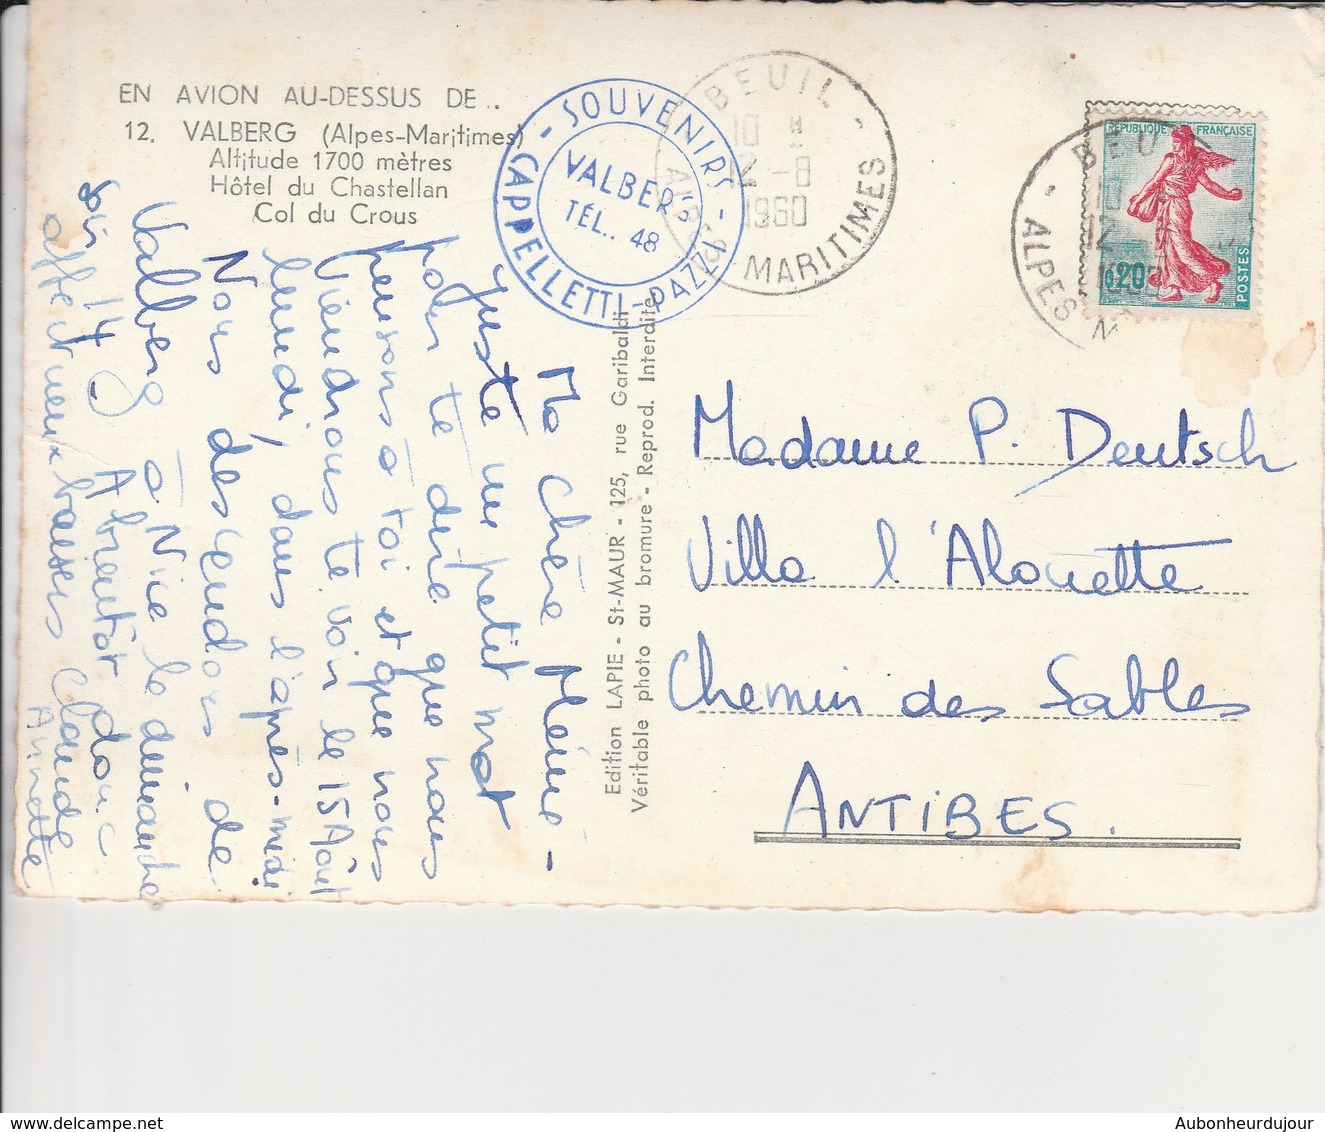 EN AVION AU-DESSUS DE..
12. VALBERG (Alpes-Maritimes)
Altitude 1700 mètres
Hôtel du Chastellan
Col du Crous
- SOUVENIRS -
CAPPELLETTI-PAZZI
VALBERG
TÉL.. 48
BEUIL
10 H
-8
1960
MARITIMES
RÉPUBLIQUE FRANÇAISE
0,20
POSTES
BEUIL
ALPES M
Ma chère Mémé -
juste un petit mot
pour te dire que nous
pensons à toi et que nous
viendrons te voir le 15 Août
lundi, dans l'après-midi
Nous descendons de
Valberg à Nice le dimanche
soir 14. A bientôt donc
affectueux baisers Claude
Annette
Edition LAPIE - St-MAUR - 125, rue Garibaldi
Véritable photo au bromure - Reprod. Interdite
Madame P. Deutsch
Villa l'Alouette
Chemin des Sables
ANTIBES.
www.delcampe.net
Aubonheurdujour